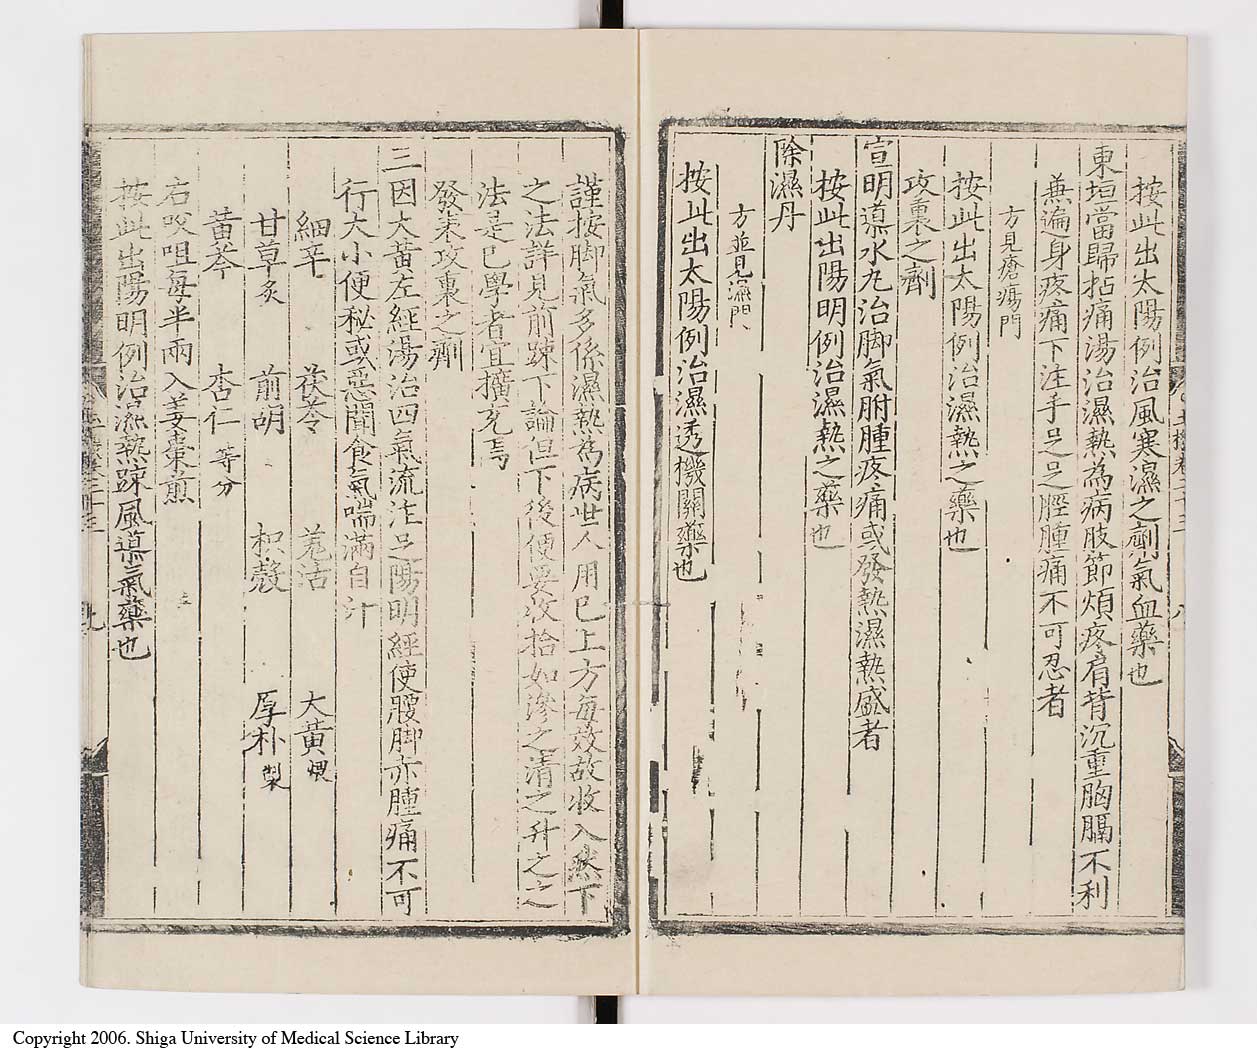 按此出太陽例治風寒濕之劑氣血藥也
東垣當歸拈痛湯治濕熱為病肢節煩疼肩背沉重胸膈不利
兼遍身疼痛下注手足足脛腫痛不可忍者
方見瘡瘍門
按此出太陽例治濕熱之藥也
攻裏之劑
宣明導水丸治脚氣胕腫疼痛或發熱濕熱盛者
按此出陽明例治濕熱之藥也
除濕丹
方並見濕門
按此出太陽例治濕透機關藥也
謹按脚氣多係濕熱為病世人用巳上方每效故收入然下
之法詳見前踈下論但下後便要收拾如滲之清之升之之
法是巳學者宜擴充焉
發表攻裏之劑
三因大黃左經湯治四氣流注足陽明經使腰脚亦腫痛不可
行大小便秘或惡聞食氣喘滿自汁
細辛 茯苓 羗活 大黃煨
甘草炙 前胡 枳殼 厚朴製
黃芩 杏仁等分
右㕮咀每半兩入姜棗煎
按此出陽明例治濕熱踈風導氣藥也
Copyright 2006. Shiga University of Medical Science Library